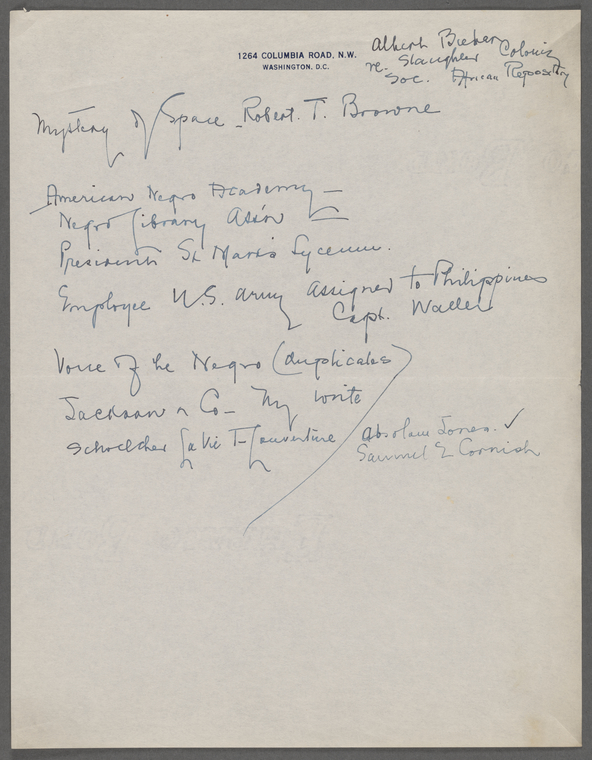 1264 COLUMBIA ROAD, N.W.
WASHINGTON, D.C.
Albert Bieber
re. Slaughter Coloniz
Soc. African Repository
Mystery of Space - Robert. T. Browne
American Negro Academy -
Negro Library Ass'n
President St Mark's Lyceum.
Employee U.S. Army assigned to Philippines
Capt. Waller
Voice of the Negro (duplicates)
Jackson & Co - Ny write
Schoelcher La Vie T-Louverture
Absolam Jones. ✓
Samuel E Cornish